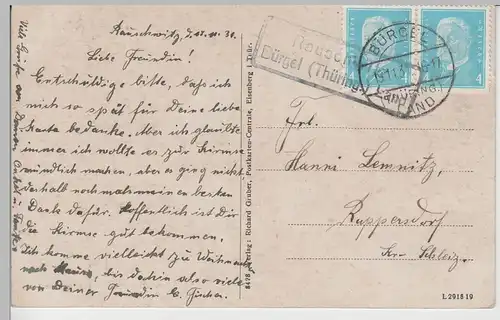 Rauschwitz, d. 11. 31.
Liebe Freundin!
Entschuldige bitte, daß ich
mich so spät für Deine liebe
Karte bedanke. Aber ich glaubte
immer ich wollte es zur Kirmse
mündlich machen, aber es ging nicht
deshalb nochmals meinen besten
Dank dafür. Hoffentlich ist Dir
die Kirmse gut bekommen.
Ich komme vielleicht zu Weihnacht
nach Hause, bis dahin also viele
von Deiner Freundin E. Fischer.
Viele Grüße an Deinen Onkel u. Tante
8478 Verlag: Richard Gruber, Postkarten-Centrale, Eisenberg i. Thür.
Rausch
Bürgel (Thüring.
Land
BÜRGEL
THÜRING.
LAND
4
Frl.
Hanni Lemnitz,
Ruppersdorf
Kr. Schleiz.
L 2918 19